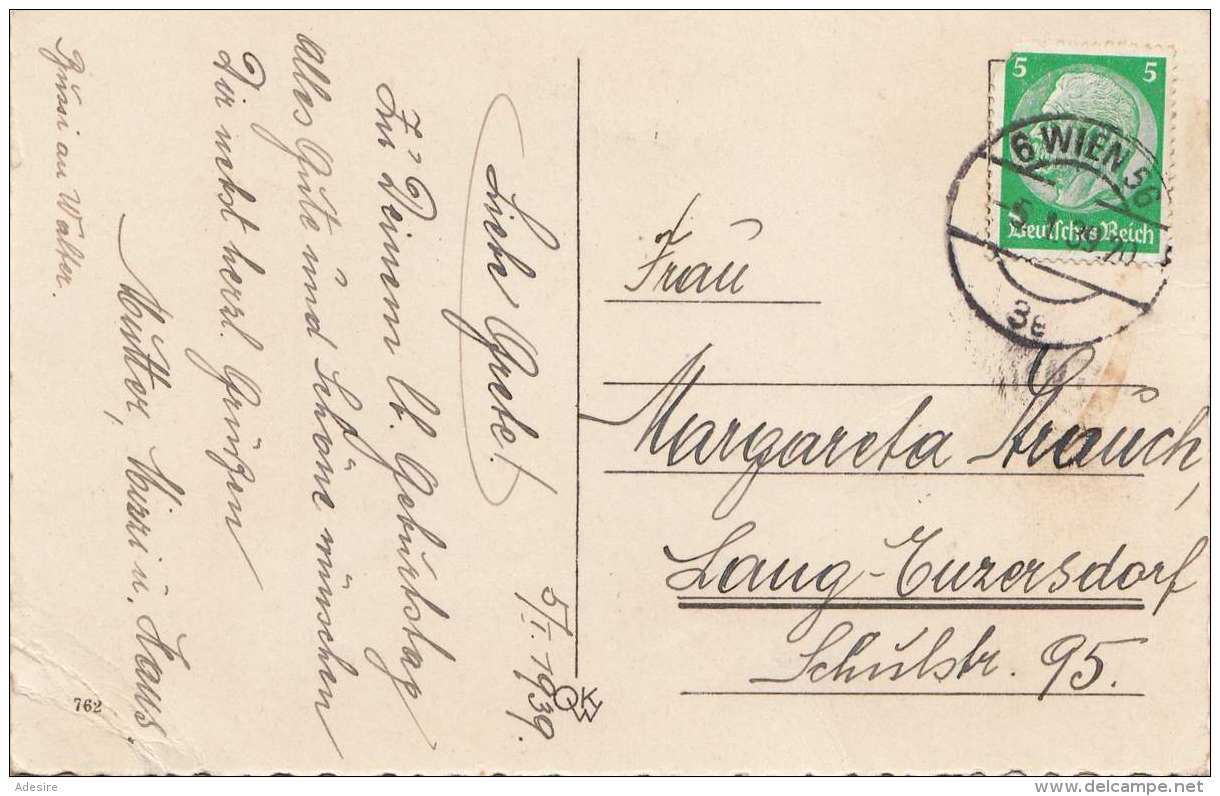 5/I. 1939.
Liebe Grete!
Zu Deinem lb. Geburtstag
alles Gute und Schöne wünschen
Dir nebst herzl. Grüßen
Mutter, Mizzi u. Hans.
Bussi an Walter.
762
QKW
5 5
Deutsches Reich
6 WIEN 56
5.I.39.20
3e
Frau
Margareta Strauch,
Lang-Enzersdorf
Schulstr. 95.
Adesire
www.delcampe.net